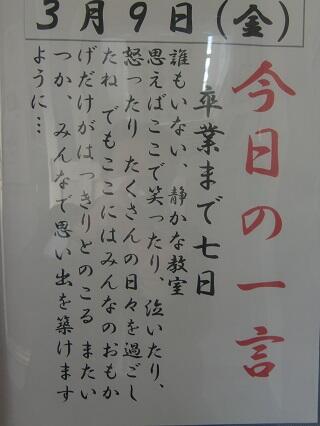 3月9日(金)
今日の一言
卒業まで七日
誰もいない、静かな教室
思えばここで笑ったり、泣いたり、
怒ったり たくさんの日々を過ごし
たね でもここにはみんなのおもか
げだけがはっきりとのこる またい
つか、みんなで思い出を築けます
ように…